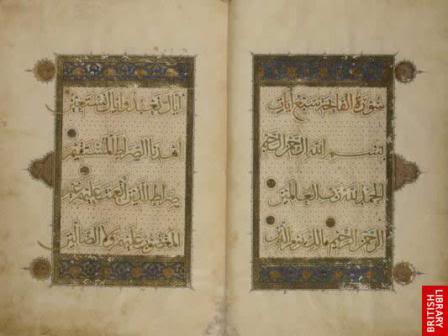 سورة الفاتحة سبع آيات
بسم الله الرحمن الرحيم
الحمد لله رب العالمين
الرحمن الرحيم مالك يوم الدين
إياك نعبد وإياك نستعين
اهدنا الصراط المستقيم
صراط الذين أنعمت عليهم غير
المغضوب عليهم ولا الضالين
BRITISH
LIBRARY